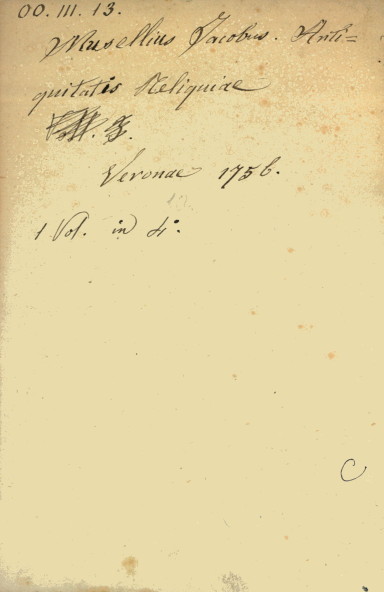 OO. III. 13.
Musellius Jacobus. Anti=
quitatis Reliquiae
Veronae 1756.
1 Vol. in 4°.
C